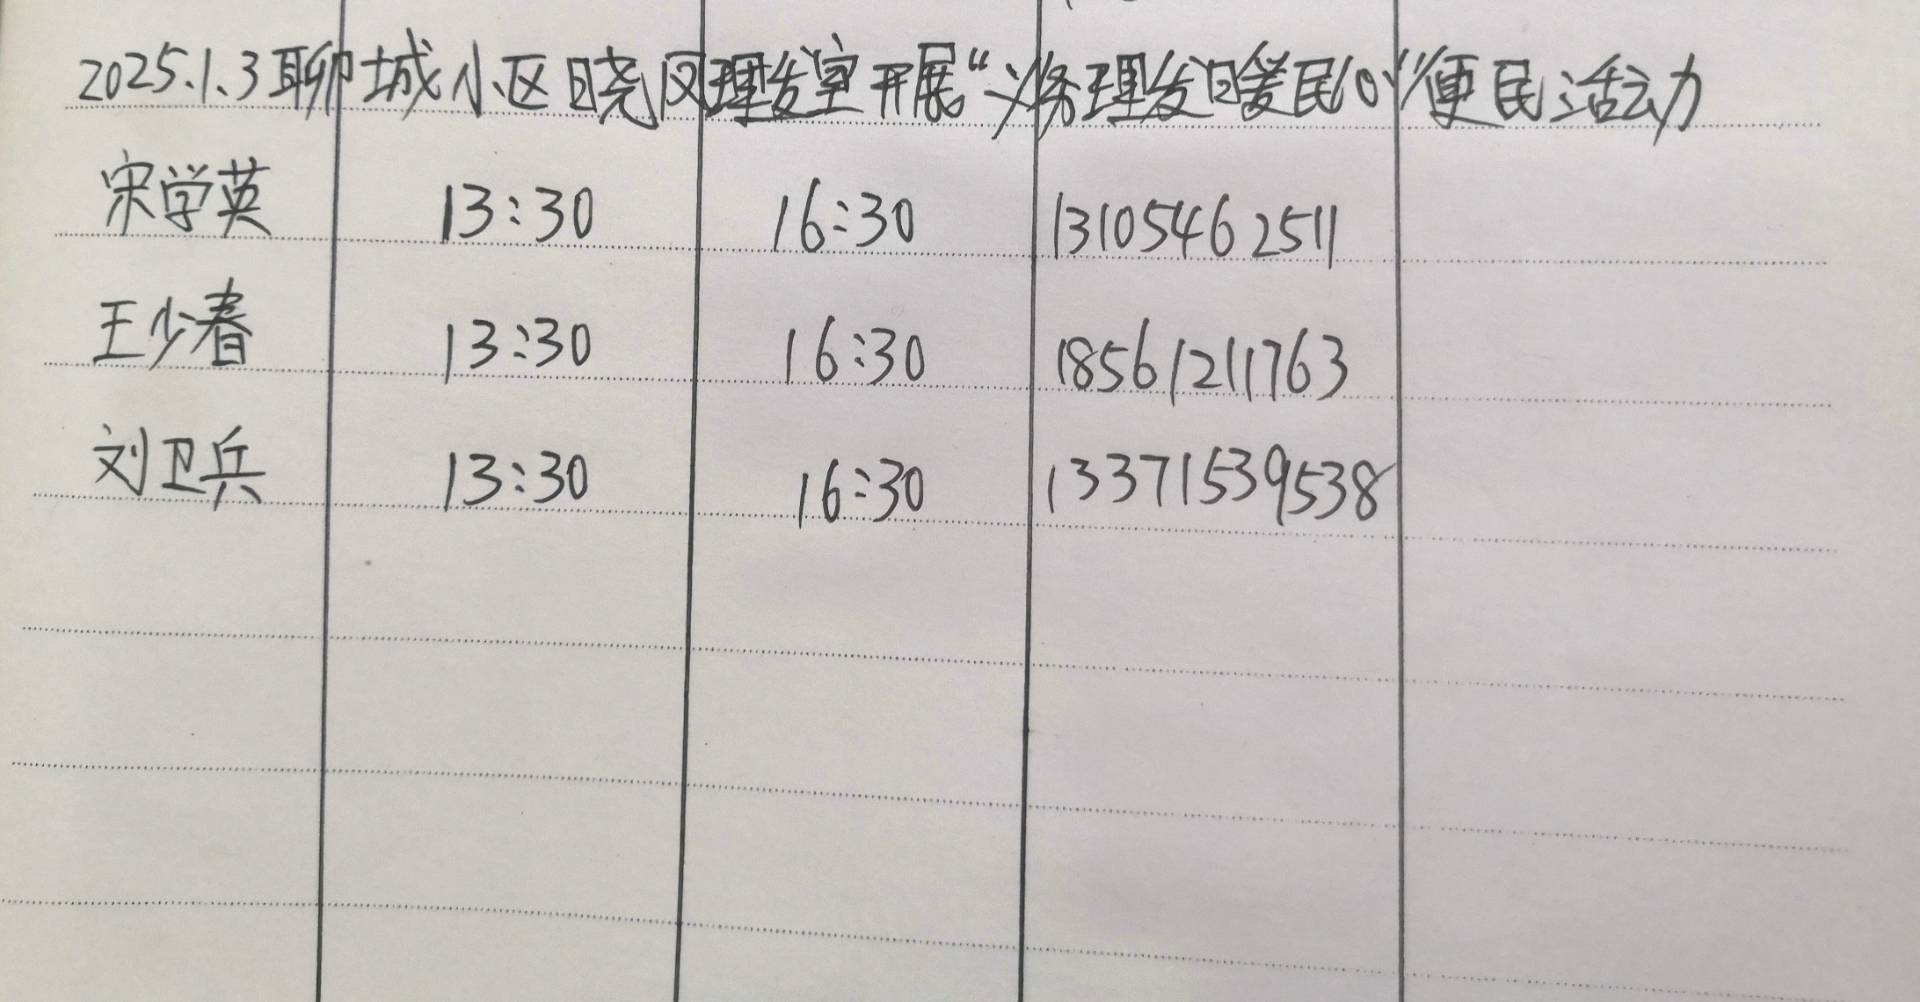 2025.1.3聊城小区晓风理发室开展“义务理发暖民心”便民活动
宋学英 13:30 16:30 13105462511
王少春 13:30 16:30 18561211763
刘卫兵 13:30 16:30 13371539538